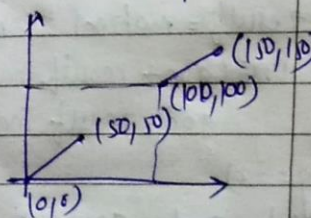 (150,150)
(100,100)
(50,50)
(0,0)